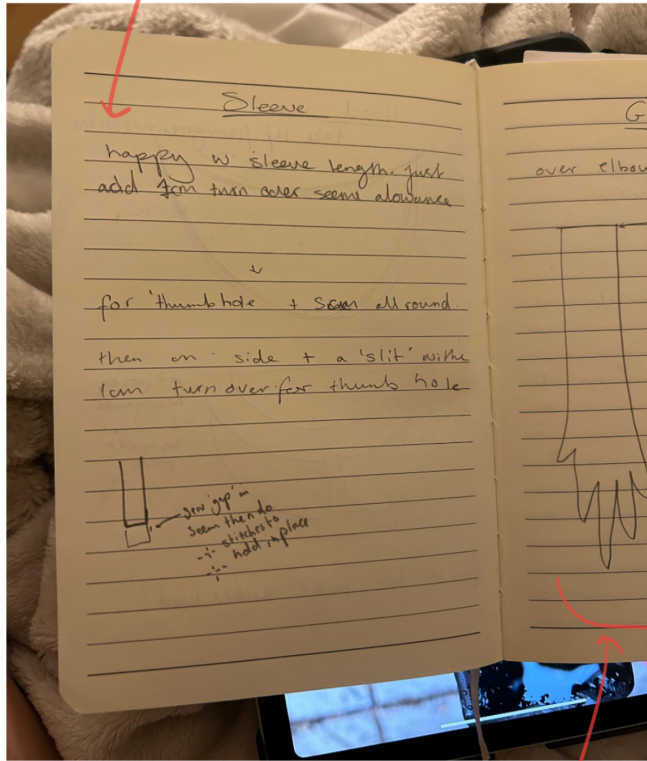 Sleeve
happy w sleeve length. just
add 1cm turn over seems alowance
for 'thumbhole + seam all round.
then on side + a 'slit' withe
1cm turn over for thumb hole
sew 'gap' in
seem then do
stitches to
hold in place
G
over elbou